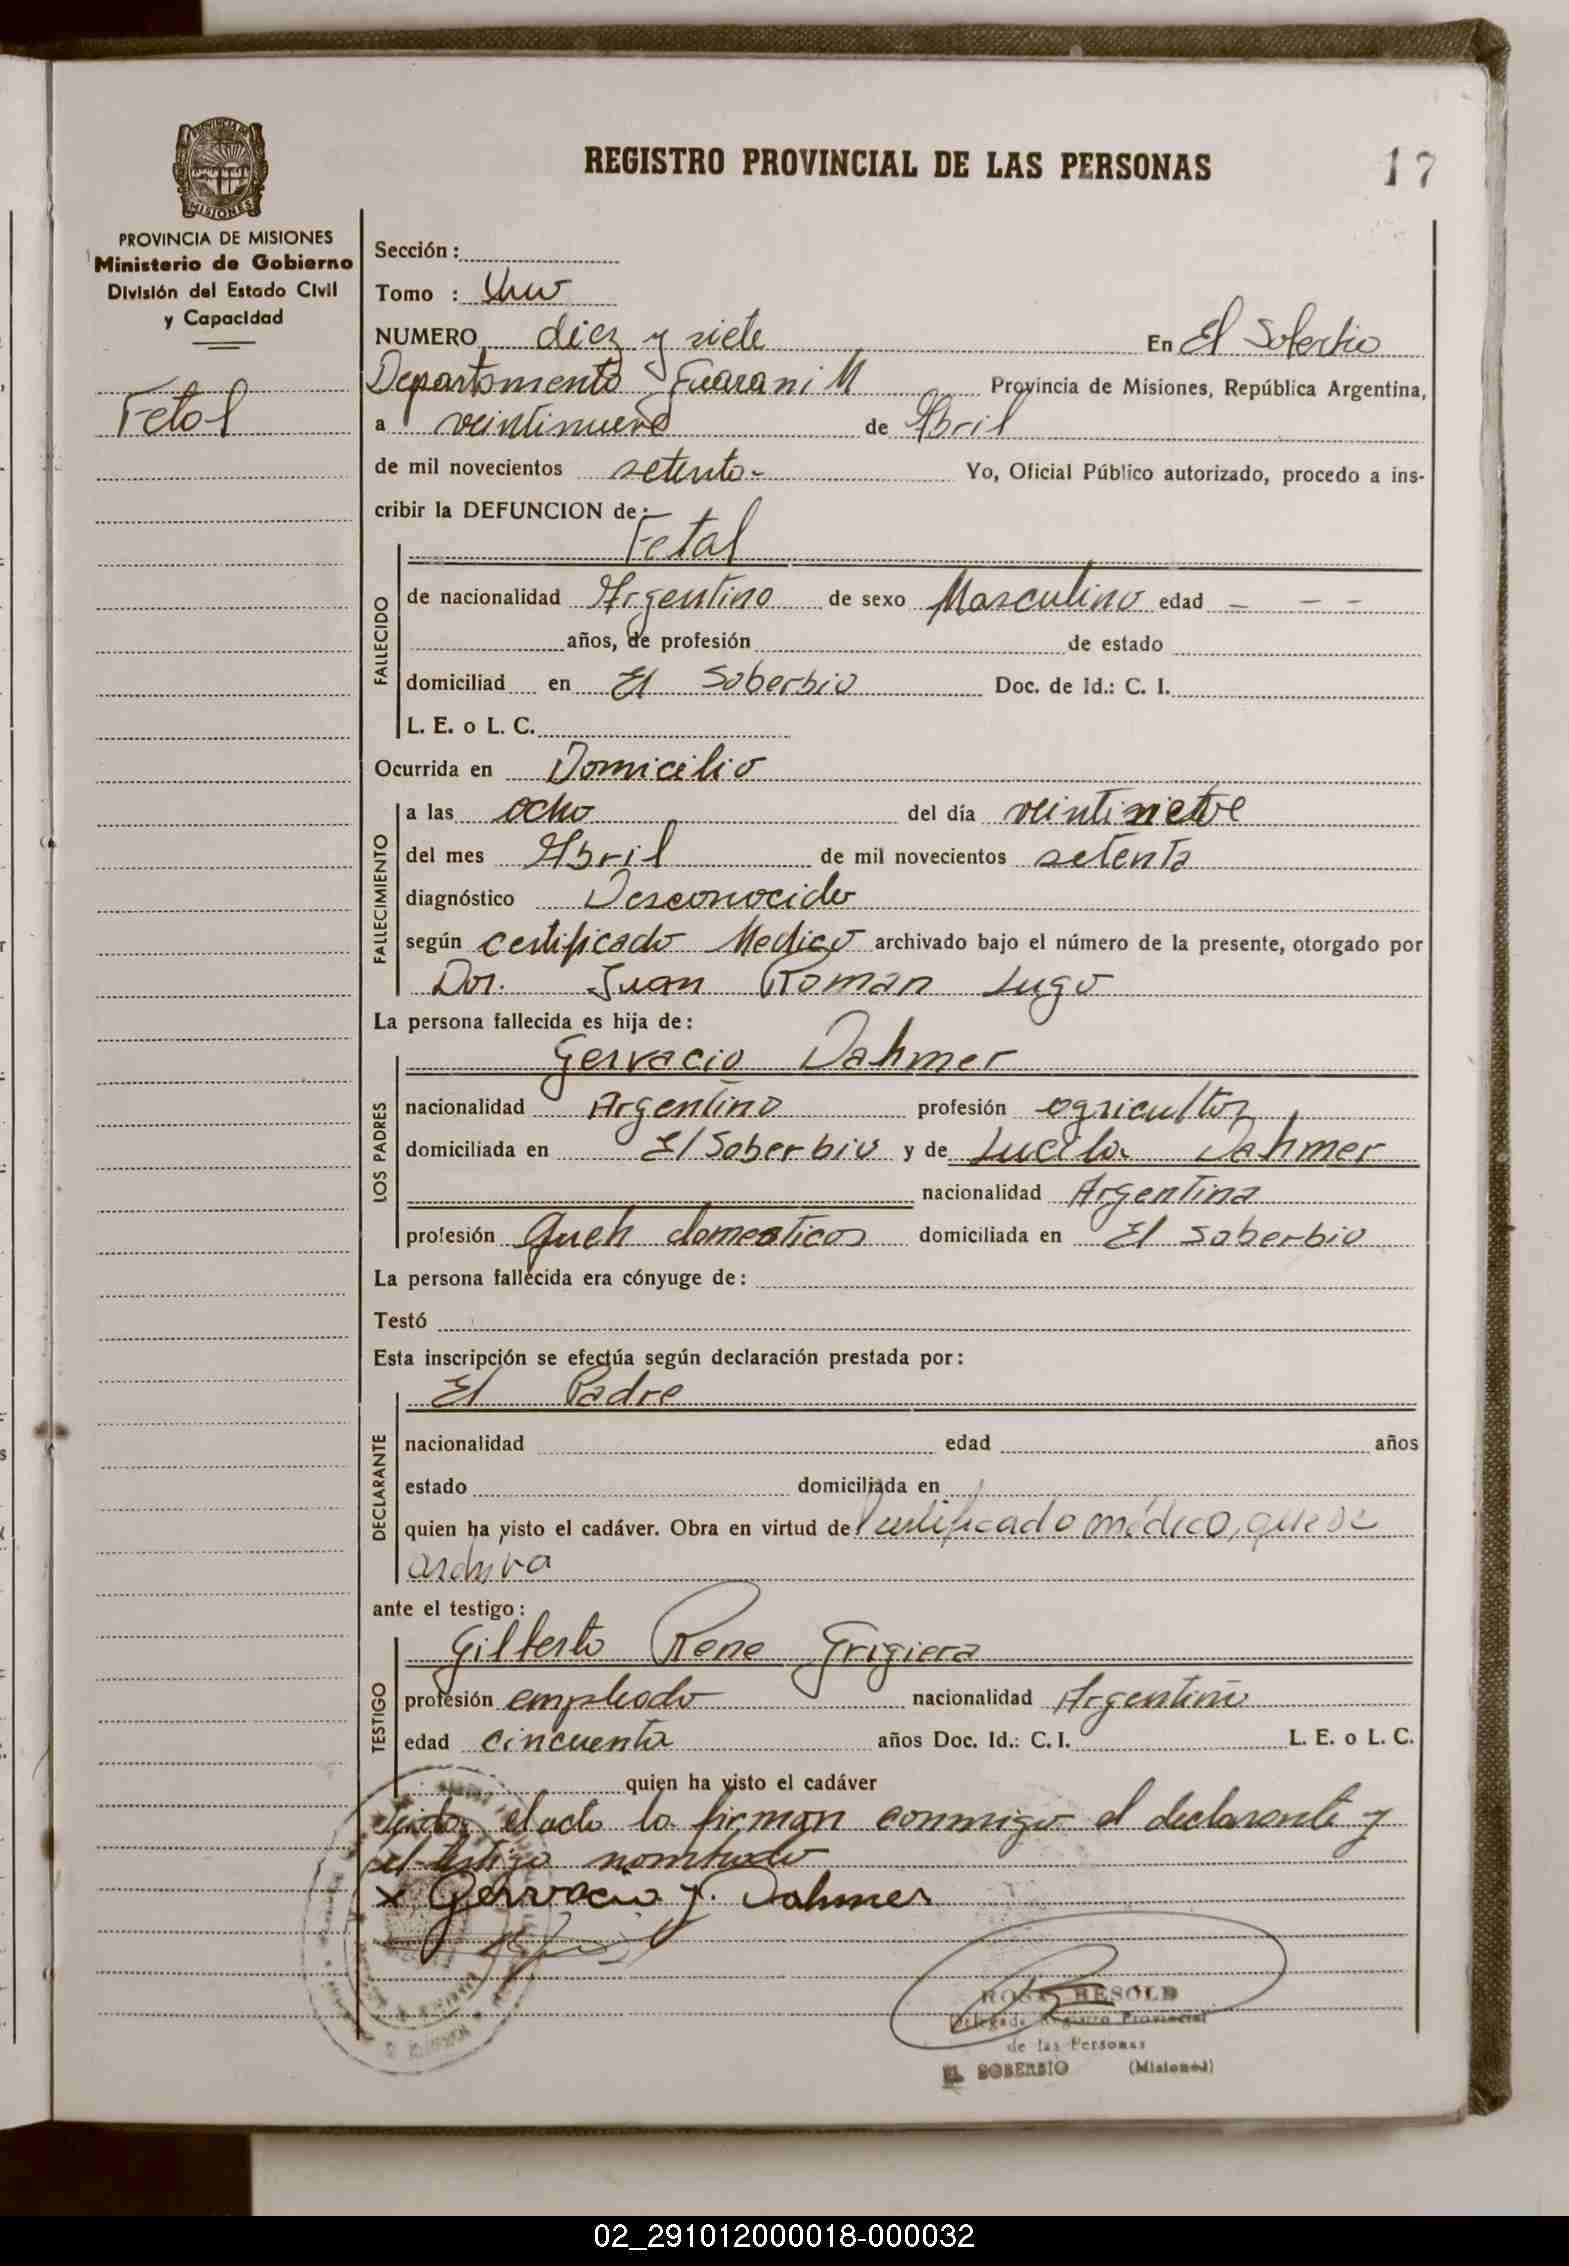 REGISTRO PROVINCIAL DE LAS PERSONAS
17
PROVINCIA DE MISIONES
Ministerio de Gobierno
División del Estado Civil
y Capacidad
Fetal
Sección :
Tomo : Uno
NUMERO diez y siete En El Soberbio
Departamento Guarani M Provincia de Misiones, República Argentina,
a veintinueve de Abril
de mil novecientos setenta- Yo, Oficial Público autorizado, procedo a ins-
cribir la DEFUNCION de:
Fetal
FALLECIDO
de nacionalidad Argentino de sexo Masculino edad - - -
años, de profesión de estado
domiciliad en El Soberbio Doc. de Id.: C. I.
L. E. o L. C.
Ocurrida en Domicilio
FALLECIMIENTO
a las ocho del día
del mes Abril de mil novecientos setenta
diagnóstico Desconocido
según certificado Medico archivado bajo el número de la presente, otorgado por
Dor. Juan Roman Lugo
La persona fallecida es hija de:
LOS PADRES
Gervacio Dahmer
nacionalidad Argentino profesión agricultor
domiciliada en El Soberbio y de Lucila Dahmer
nacionalidad Argentina
profesión Queh domesticos domiciliada en El Soberbio
La persona fallecida era cónyuge de:
Testó
Esta inscripción se efectúa según declaración prestada por:
DECLARANTE
El Padre
nacionalidad edad años
estado domiciliada en
quien ha visto el cadáver. Obra en virtud de certificado médico, que se
archiva
ante el testigo:
TESTIGO
Gilberto Rene Grigiera
profesión empleado nacionalidad Argentino
edad cincuenta años Doc. Id.: C. I. L. E. o L. C.
quien ha visto el cadáver
Leida el acta la firman conmigo el declarante y
el testigo nombrado
x Gervacio J. Dahmer
ROSA BESOLD
Delegada Registro Provincial
de las Personas
EL SOBERBIO (Misiones)
02_291012000018-000032